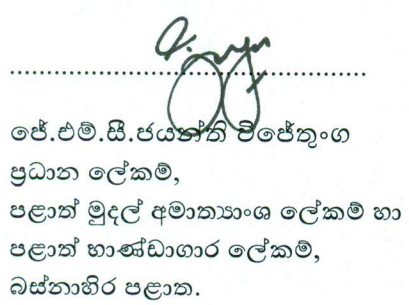 ජේ.එම්.සී.ජයන්ති විජේතුංග
ප්‍රධාන ලේකම්,
පළාත් මුදල් අමාත්‍යාංශ ලේකම් හා
පළාත් භාණ්ඩාගාර ලේකම්,
බස්නාහිර පළාත.